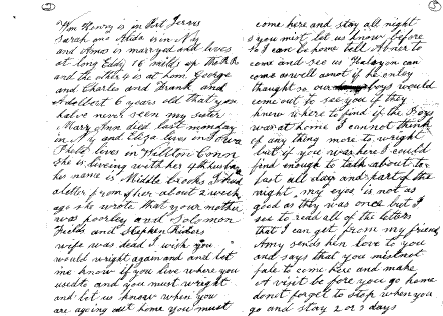 Wm Henry is in Port Jervis
Sarah and Alida is in Ny
and Amos is marryed and lives
at long Eddy 16 miles up the R R
and the others is at home George
and Charles and Frank and
Adelbert 6 years old that you
have never seen my sister
Mary Ann died last monday
in Ny and Eliza lives on
Fields lives in Conn
She is liveing with her 4th
his name is Middlebrooks I had
a letter from her about a week
ago she wrote that your mother
was poorley and Solomon
Fields and Stephen
wife was dead I wish you
would wright again and let
me know if you live where you
used to and you must wright
and let us know when you
are agoing out home you must
come here and stay all night
you must let us know before
so I can be home tell Abner to
come and see us he can
come as well as not if he only
thought so our boys would
come out to see you if they
knew where to find if the Boys
was at home I cannot think
of any thing more to wright
but if you was here I could
find enough to talk about to
last all day and part of the
night my eyes is not as
good as they was once but I
see to read all of the leters
that I can get from my friends
Amy sends her love to you
and says that you mustnot
fale to come here and make
A visit before you go home
donot forget to stop when you
go and stay 2 or 3 days